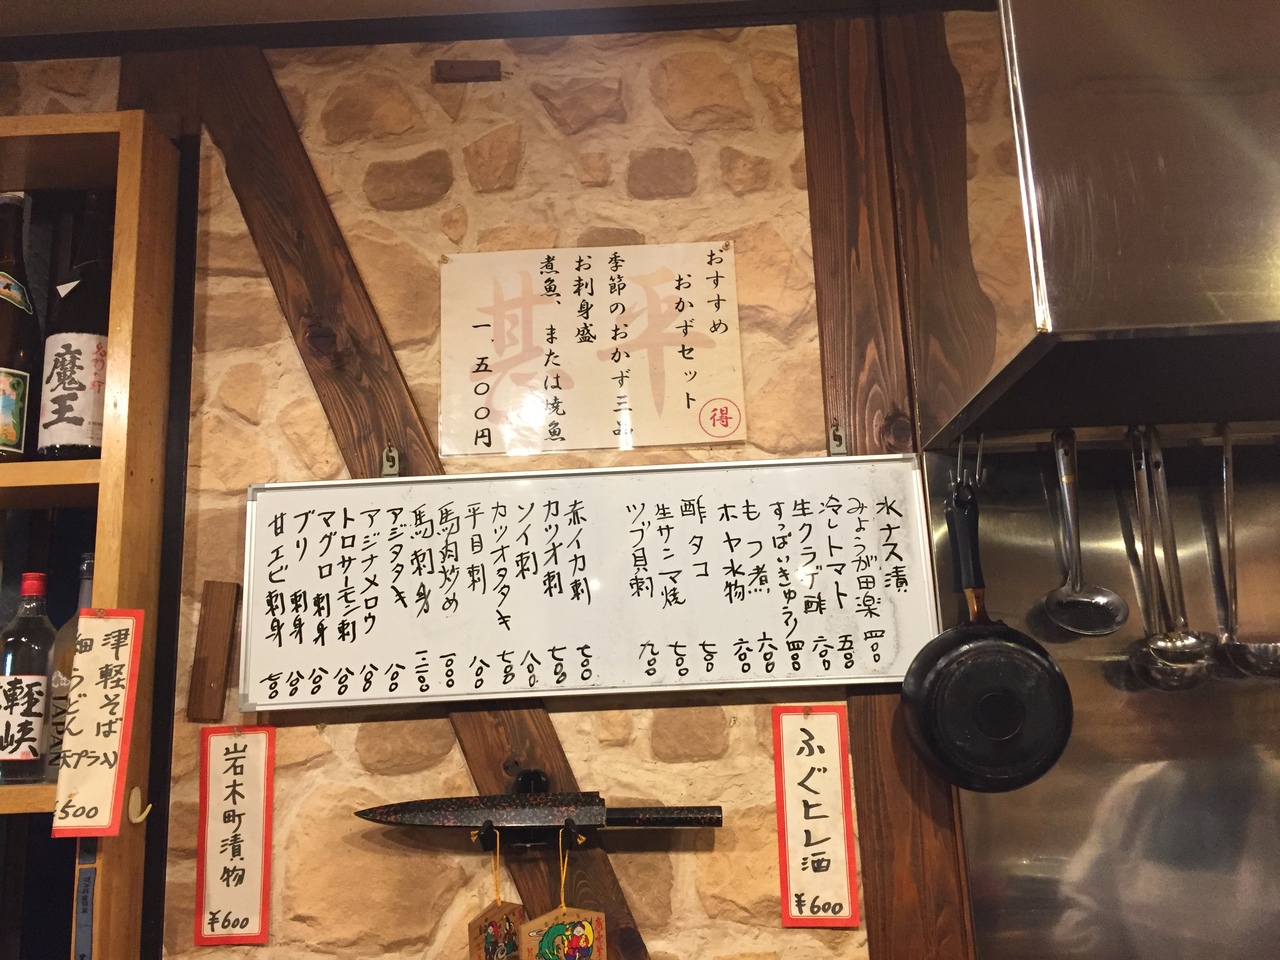 おすすめ
おかずセット
季節のおかず三品
お刺身盛
煮魚、または焼魚
一、五〇〇円
得
甚平
水ナス漬 四〇〇
みょうが田楽 五〇〇
冷しトマト 六〇〇
生クラゲ酢 四〇〇
すっぱいきゅうり 六〇〇
もつ煮 六〇〇
ホヤ水物 七〇〇
酢タコ 七〇〇
生サンマ焼 九〇〇
ツブ貝刺
赤イカ刺 七〇〇
カツオ刺 七〇〇
ソイ刺 八〇〇
カツオタタキ 七〇〇
平目刺 八〇〇
馬肉炒め 一〇〇〇
馬刺身 一二〇〇
アジタタキ 八〇〇
アジナメロウ 八〇〇
トロサーモン刺 八〇〇
マグロ刺身 八〇〇
ブリ刺身 八〇〇
甘エビ刺身 七〇〇
魔王
津軽そば
細うどん
天プラ入
¥500
軽
峡
JAPAN
岩木町漬物
¥600
ふぐヒレ酒
¥600